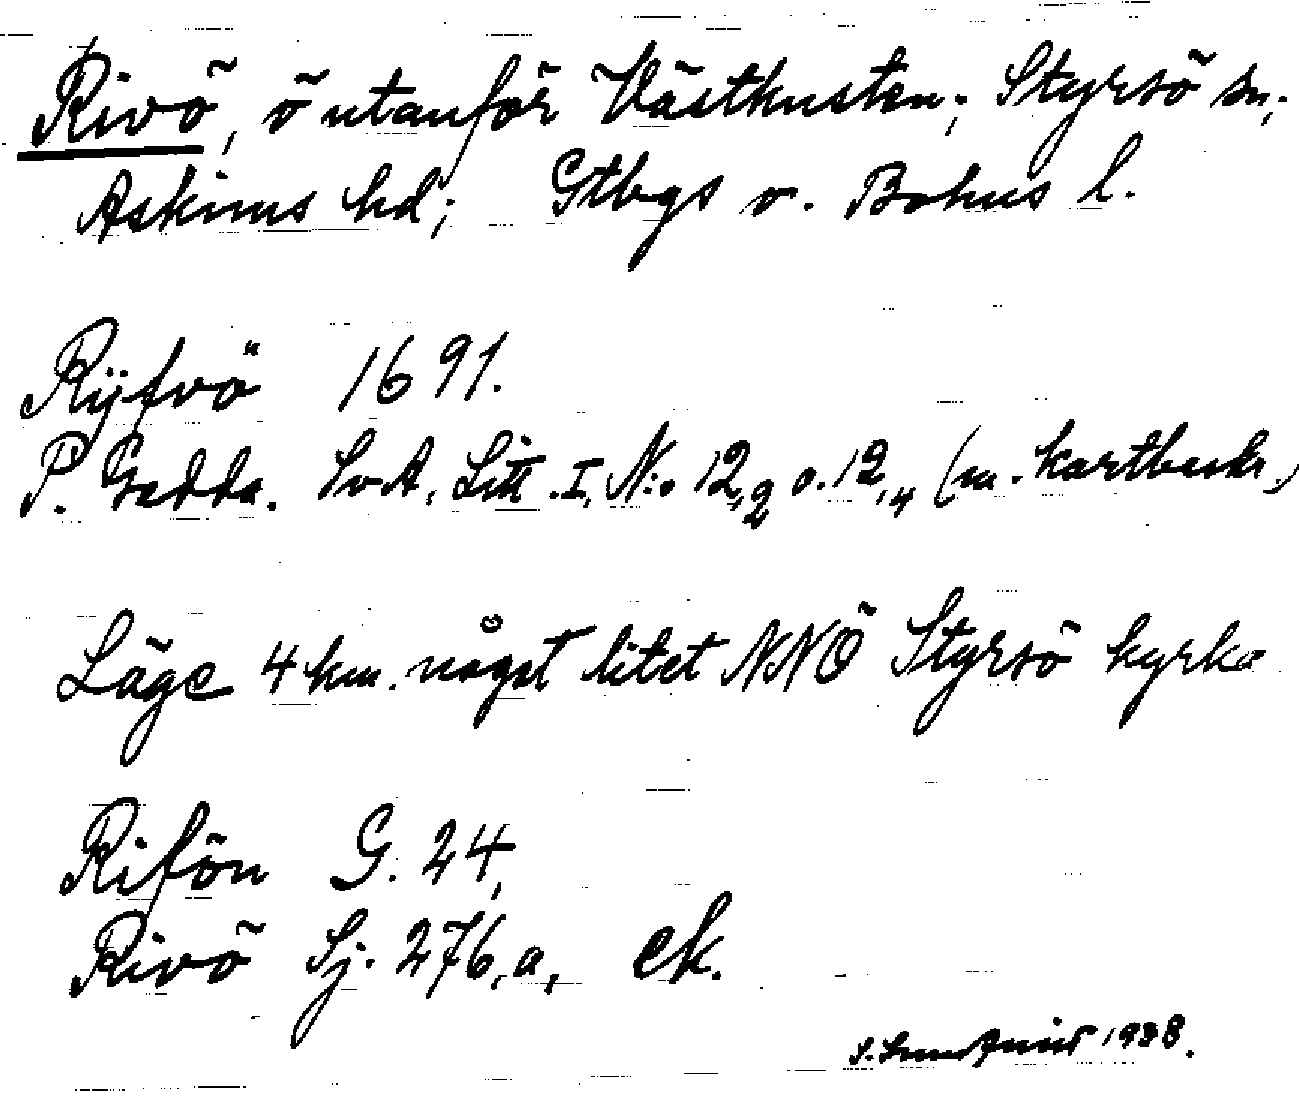 Rivö, ö utanför Västkusten; Styrsö sn;
Askims hd; Gtbgs o. Bohus l.
Rÿfvö 1691.
P. Gedda. SvA, Litt. I, N:o 12,2 o. 12,4 (m. kartbeskr.)
Läge 4 km. något litet NNÖ Styrsö kyrka
Rifön G. 24,
Rivö Sj. 276,a, ek.
S. Sundquist 1938.